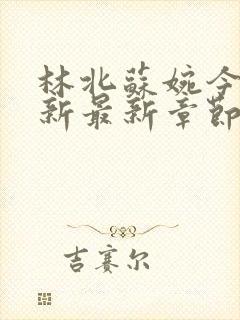 林北蘇婉今
新最新章節
吉赛尔